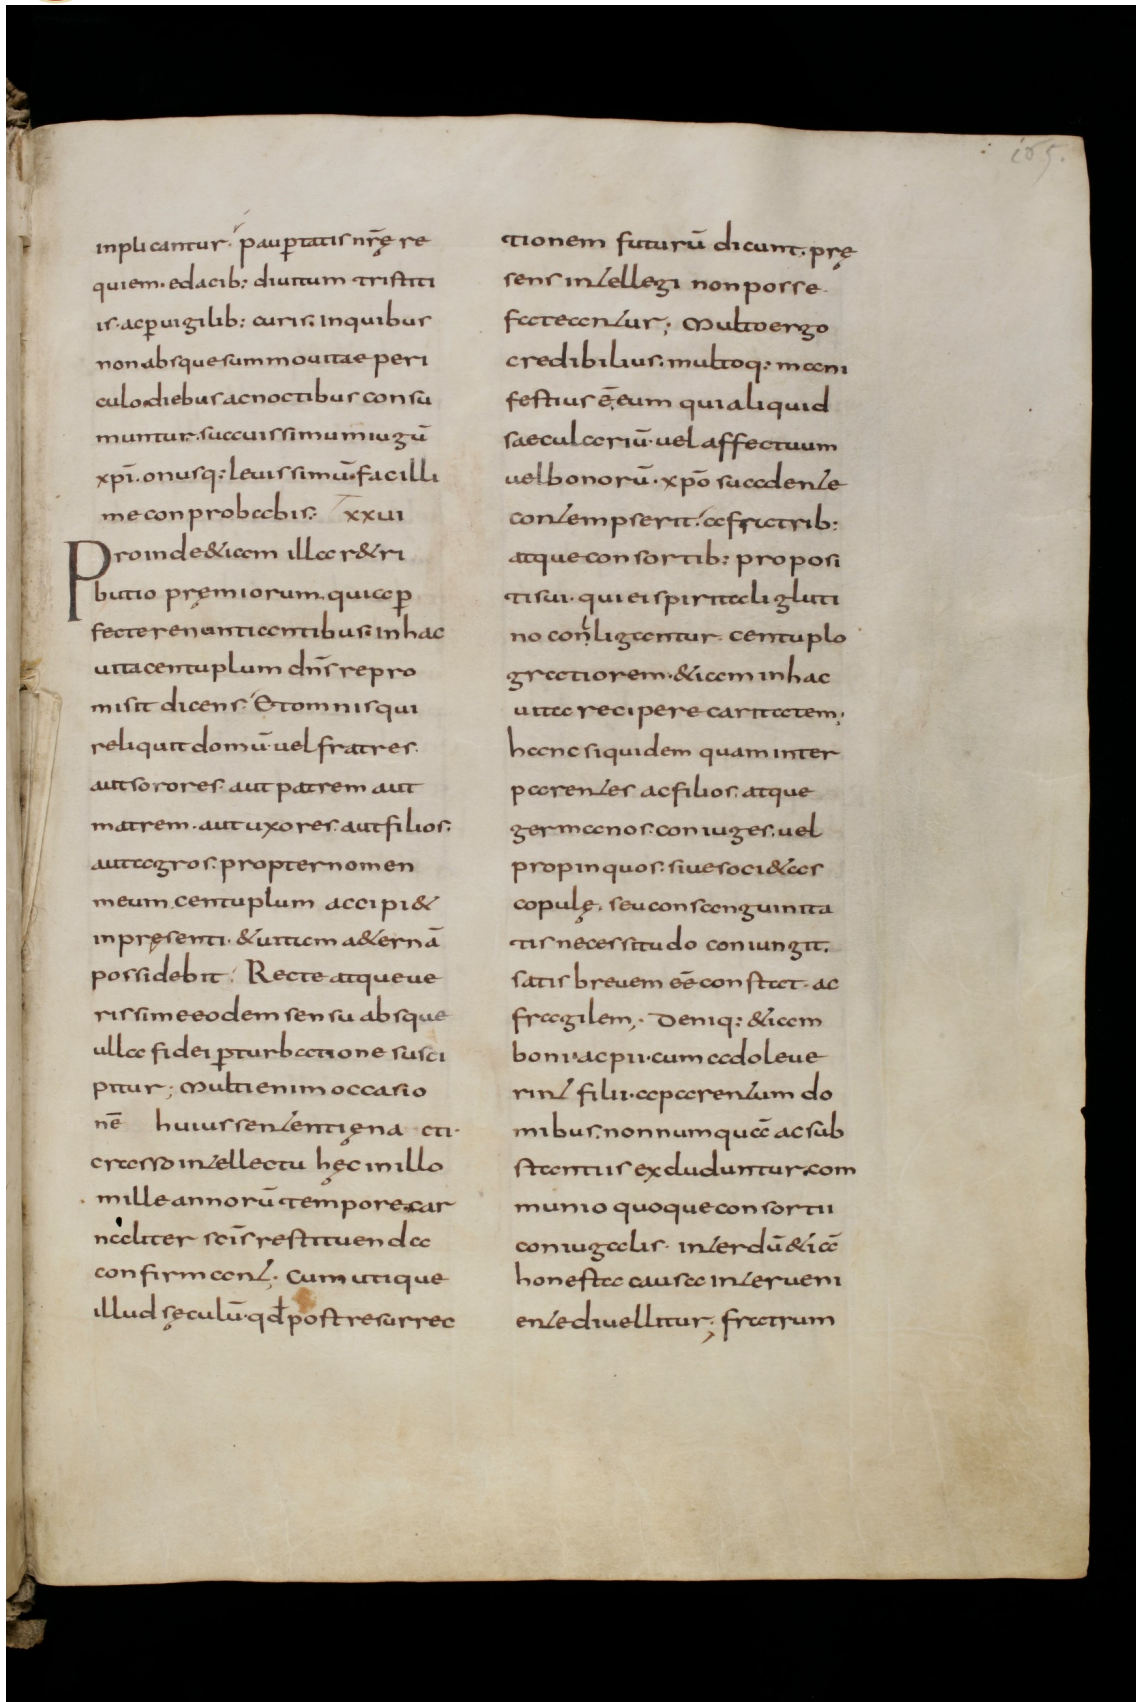 165.
inplicantur. paup̄tatis nr̄ę re
quiem. edacib: diuitum tristiti
is. acp̄uigilib: curis. Inquibus
nonabsquesummouitae peri
culo. diebus acnoctibus consu
muntur. suauissimumiugū
xp̄i. onusq: leuissimū. facilli
me conprobabis. xxvi
Proinde &iam illa r&ri
butio pręmiorum. quia ap̄
fecterenuntiantibus. Inhac
uitacentuplum dn̄s repro
misit dicens. Etomnisqui
reliquit domū. uel fratres.
aut sorores. aut patrem aut
matrem. aut uxores. aut filios.
aut agros. propter nomen
meum. centuplum accipi&
inpręsenti. &uitam a&ernā
possidebit. Recte atqueue
rissimeeodem sensu absque
ulla fidei p̄turbatione susci
pitur; Multienim occasio
nē huiussententięna cti.
crasso intellectu hęc inillo
mille annorū tempore. car
naliter sc̄is restituenda
confirmant. cum utique
illud sęculū. qd̄ post resurrec
tionem futurū dicunt. prę
sens intellegi non posse
fateantur; Multoergo
credibilius. multoq: mani
festius ē. eum qui aliquid
saeculariū. uel affectuum
uel bonorū. xpō suadente
contempserit. a fratrib:
atque consortib: proposi
tisui. qui eispiritali gluti
no conligantur. centuplo
gratiorem. &iam inhac
uita recipere caritatem.
hanc siquidem quam inter
parentes ac filios. atque
germanos. coniuges. uel
propinquos. siue soci&as
copulę. seu consanguinita
tis necessitudo coniungit.
satis breuem eē constat. ac
fragilem. Deniq: &iam
boni. ac pii. cum adoleue
rint filii. aparentum do
mibus. nonnumquā ac sub
stantiis excluduntur. com
munio quoque consortii
coniugalis. interdū &iā
honesta causa interueni
ente diuellitur; fratrum